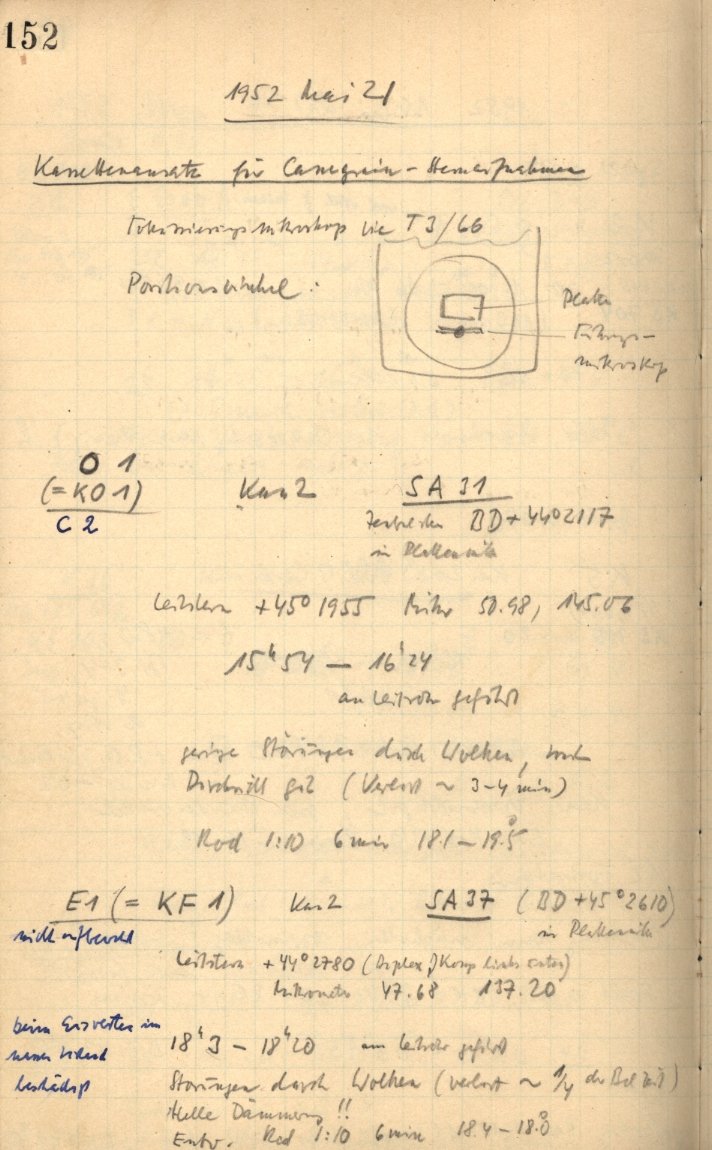 152
1952 Mai 21
Kassettenansatz für Cassegrain-Sternaufnahmen
Fokussierungsmikroskop wie T 3/66
Positionswinkel :
Platte
Führungs-
mikroskop
O 1
(= KO 1) Kas 2 SA 31
C 2 BD + 44° 2117
in Plattenmitte
Leitstern + 45° 1955 Mikr 50.98, 145.06
15h 54 — 16h 24
am Leitrohr geführt
geringe Störungen durch Wolken, sonst
Durchsicht gut (Verlust ~ 3-4 min)
Rod 1:10 6 min 18.1 – 19.5°
E1 (= KF 1) Kas 2 SA 37 (BD + 45° 2610)
nicht aufbewahrt in Plattenmitte
Leitstern + 44° 2780 (Duplex, Komp links unten)
Mikrometer 47.68 137.20
beim Entwickeln im
18h 3 – 18h 20 am Leitrohr geführt
beschädigt
Störungen durch Wolken (Verlust ~ 1/4 der Bel Zeit)
Helle Dämmerung !!
Entw. Rod 1:10 6 min 18.4 – 18.0°